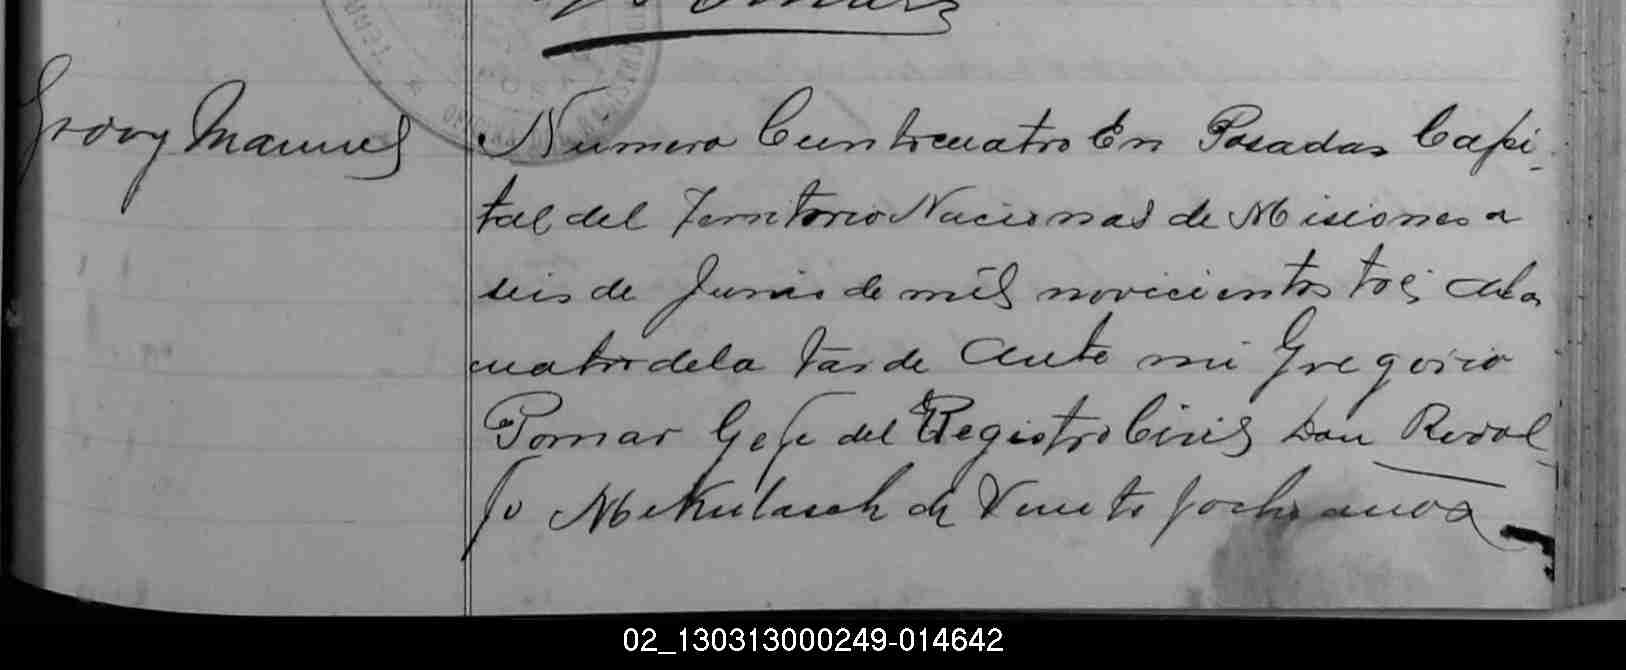 Manuel
Número Cientocuatro En Posadas Capi-
tal del Territorio Nacional de Misiones a
seis de Junio de mil novicientos tres ala
cuatro dela tarde Ante mi Gregorio
Pomar Gefe del Registro Civil Don Rodol-
fo de Veinte años
02_130313000249-014642